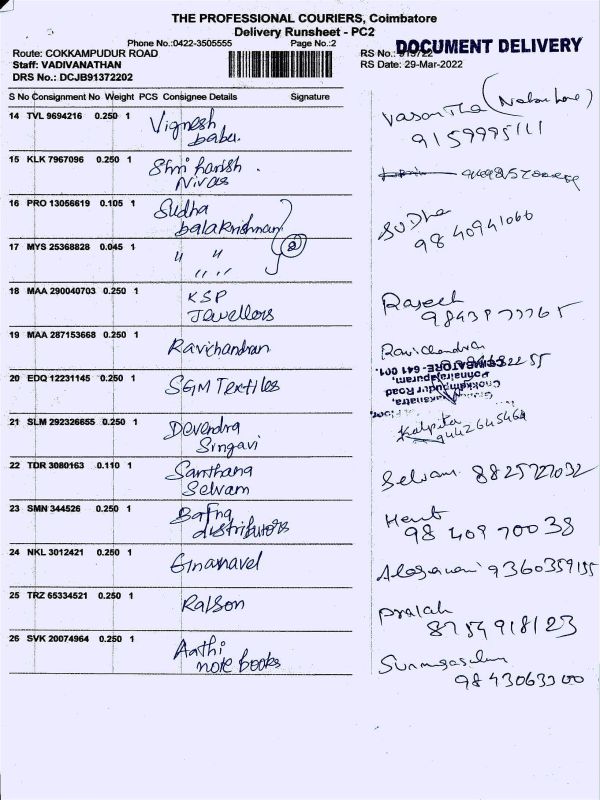 THE PROFESSIONAL COURIERS, Coimbatore
Delivery Runsheet - PC2
Phone No.:0422-3505555 Page No.:2
DOCUMENT DELIVERY
Route: COKKAMPUDUR ROAD RS No.:
Staff: VADIVANATHAN RS Date: 29-Mar-2022
DRS No.: DCJB91372202
S No Consignment No Weight PCS Consignee Details Signature
14 TVL 9694216 0.250 1 Vignesh babu. Vasantha
9159995111
15 KLK 7967096 0.250 1 Shri harish Nivas
16 PRO 13056619 0.105 1 Sudha balakrishnan Sudha
9840941066
17 MYS 25368828 0.045 1 " " 2
" "
18 MAA 290040703 0.250 1 KSP Jewellers
19 MAA 287153668 0.250 1 Ravichandran Ravichandran
COIMBATORE - 641 001.
Ponnairajapuram,
Chokkampudur Road
20 EDQ 12231145 0.250 1 SGM Textiles
21 SLM 292326655 0.250 1 Devendra Singavi Kalpita
9442645464
22 TDR 3080163 0.110 1 Santhana Selvam Selvam
23 SMN 344526 0.250 1 Bafna distributors
9840970038
24 NKL 3012421 0.250 1 Gnanavel 9360359155
25 TRZ 65334521 0.250 1 Ralson
8754918123
26 SVK 20074964 0.250 1 Aathi note books
9843063300